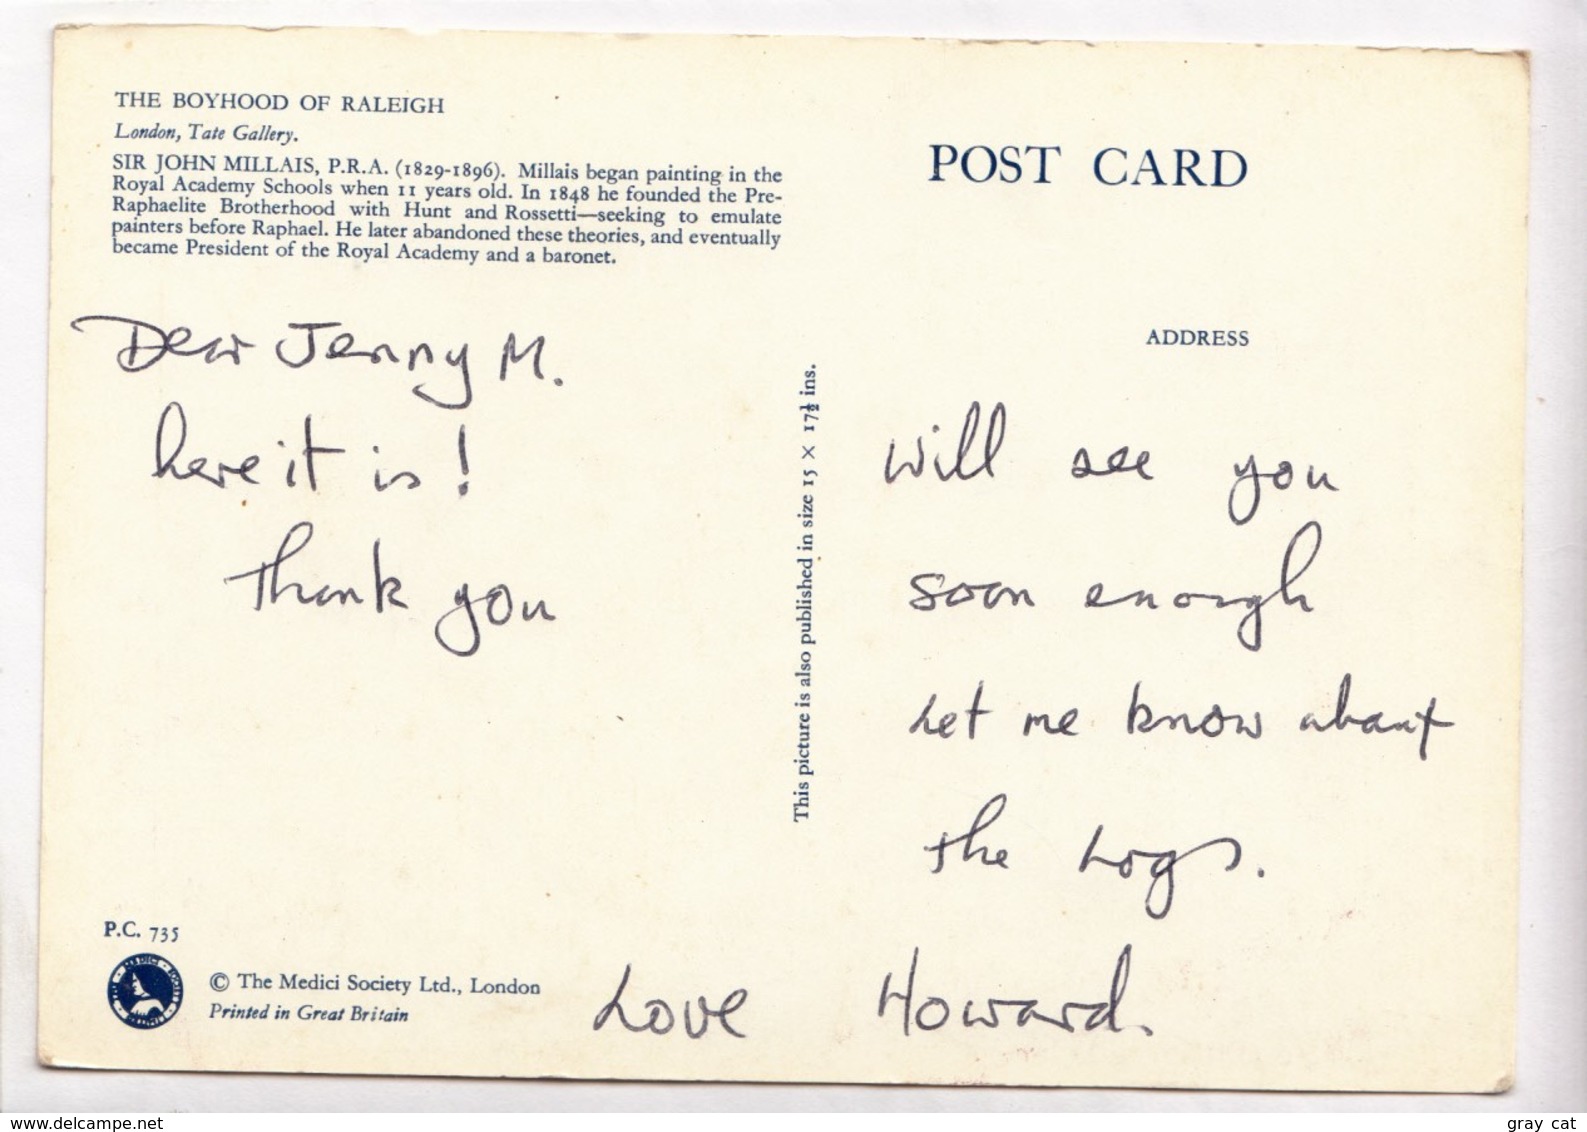 THE BOYHOOD OF RALEIGH
London, Tate Gallery.
SIR JOHN MILLAIS, P.R.A. (1829-1896). Millais began painting in the
Royal Academy Schools when 11 years old. In 1848 he founded the Pre-
Raphaelite Brotherhood with Hunt and Rossetti—seeking to emulate
painters before Raphael. He later abandoned these theories, and eventually
became President of the Royal Academy and a baronet.
Dear Jenny M.
here it is!
Thank you
P.C. 735
© The Medici Society Ltd., London
Printed in Great Britain
This picture is also published in size 15 × 17½ ins.
POST CARD
ADDRESS
Will see you
soon enough
Let me know about
the Logs.
Love Howard.
www.delcampe.net
gray cat